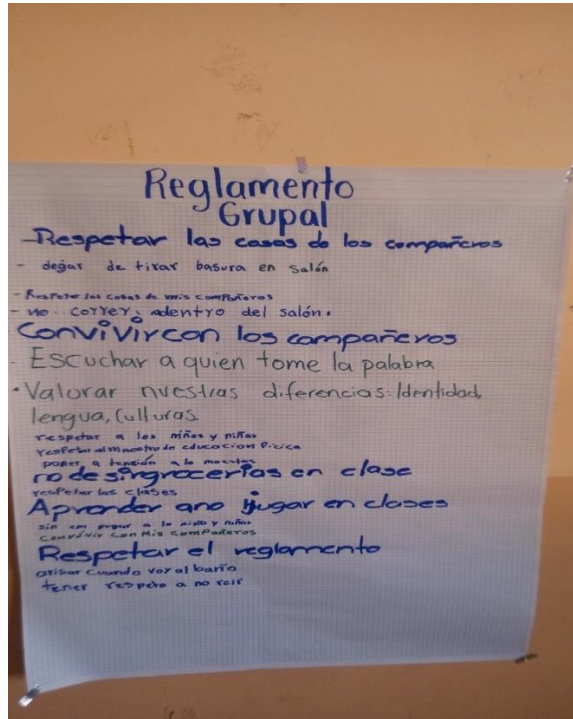 Reglamento
Grupal
-Respetar las casas de los compañeros
- degar de tirar basura en salón
- Respetar las cosas de mis compañeros
- no correr adentro del salón.
Convivir con los compañeros
- Escuchar a quien tome la palabra
• Valorar nuestras diferencias: Identidad,
lengua, Culturas
respetar a los niños y niñas
respetar al maestro de educacion Picica
poner a tención a la maestra
no desir grocerías en clase
respetar las clases
Aprender ano jugar en clases
sin a la niño y niñas
convivir con mis compañeros
Respetar el reglamento
avisar cuando voy al baño
tener respeto a no reir